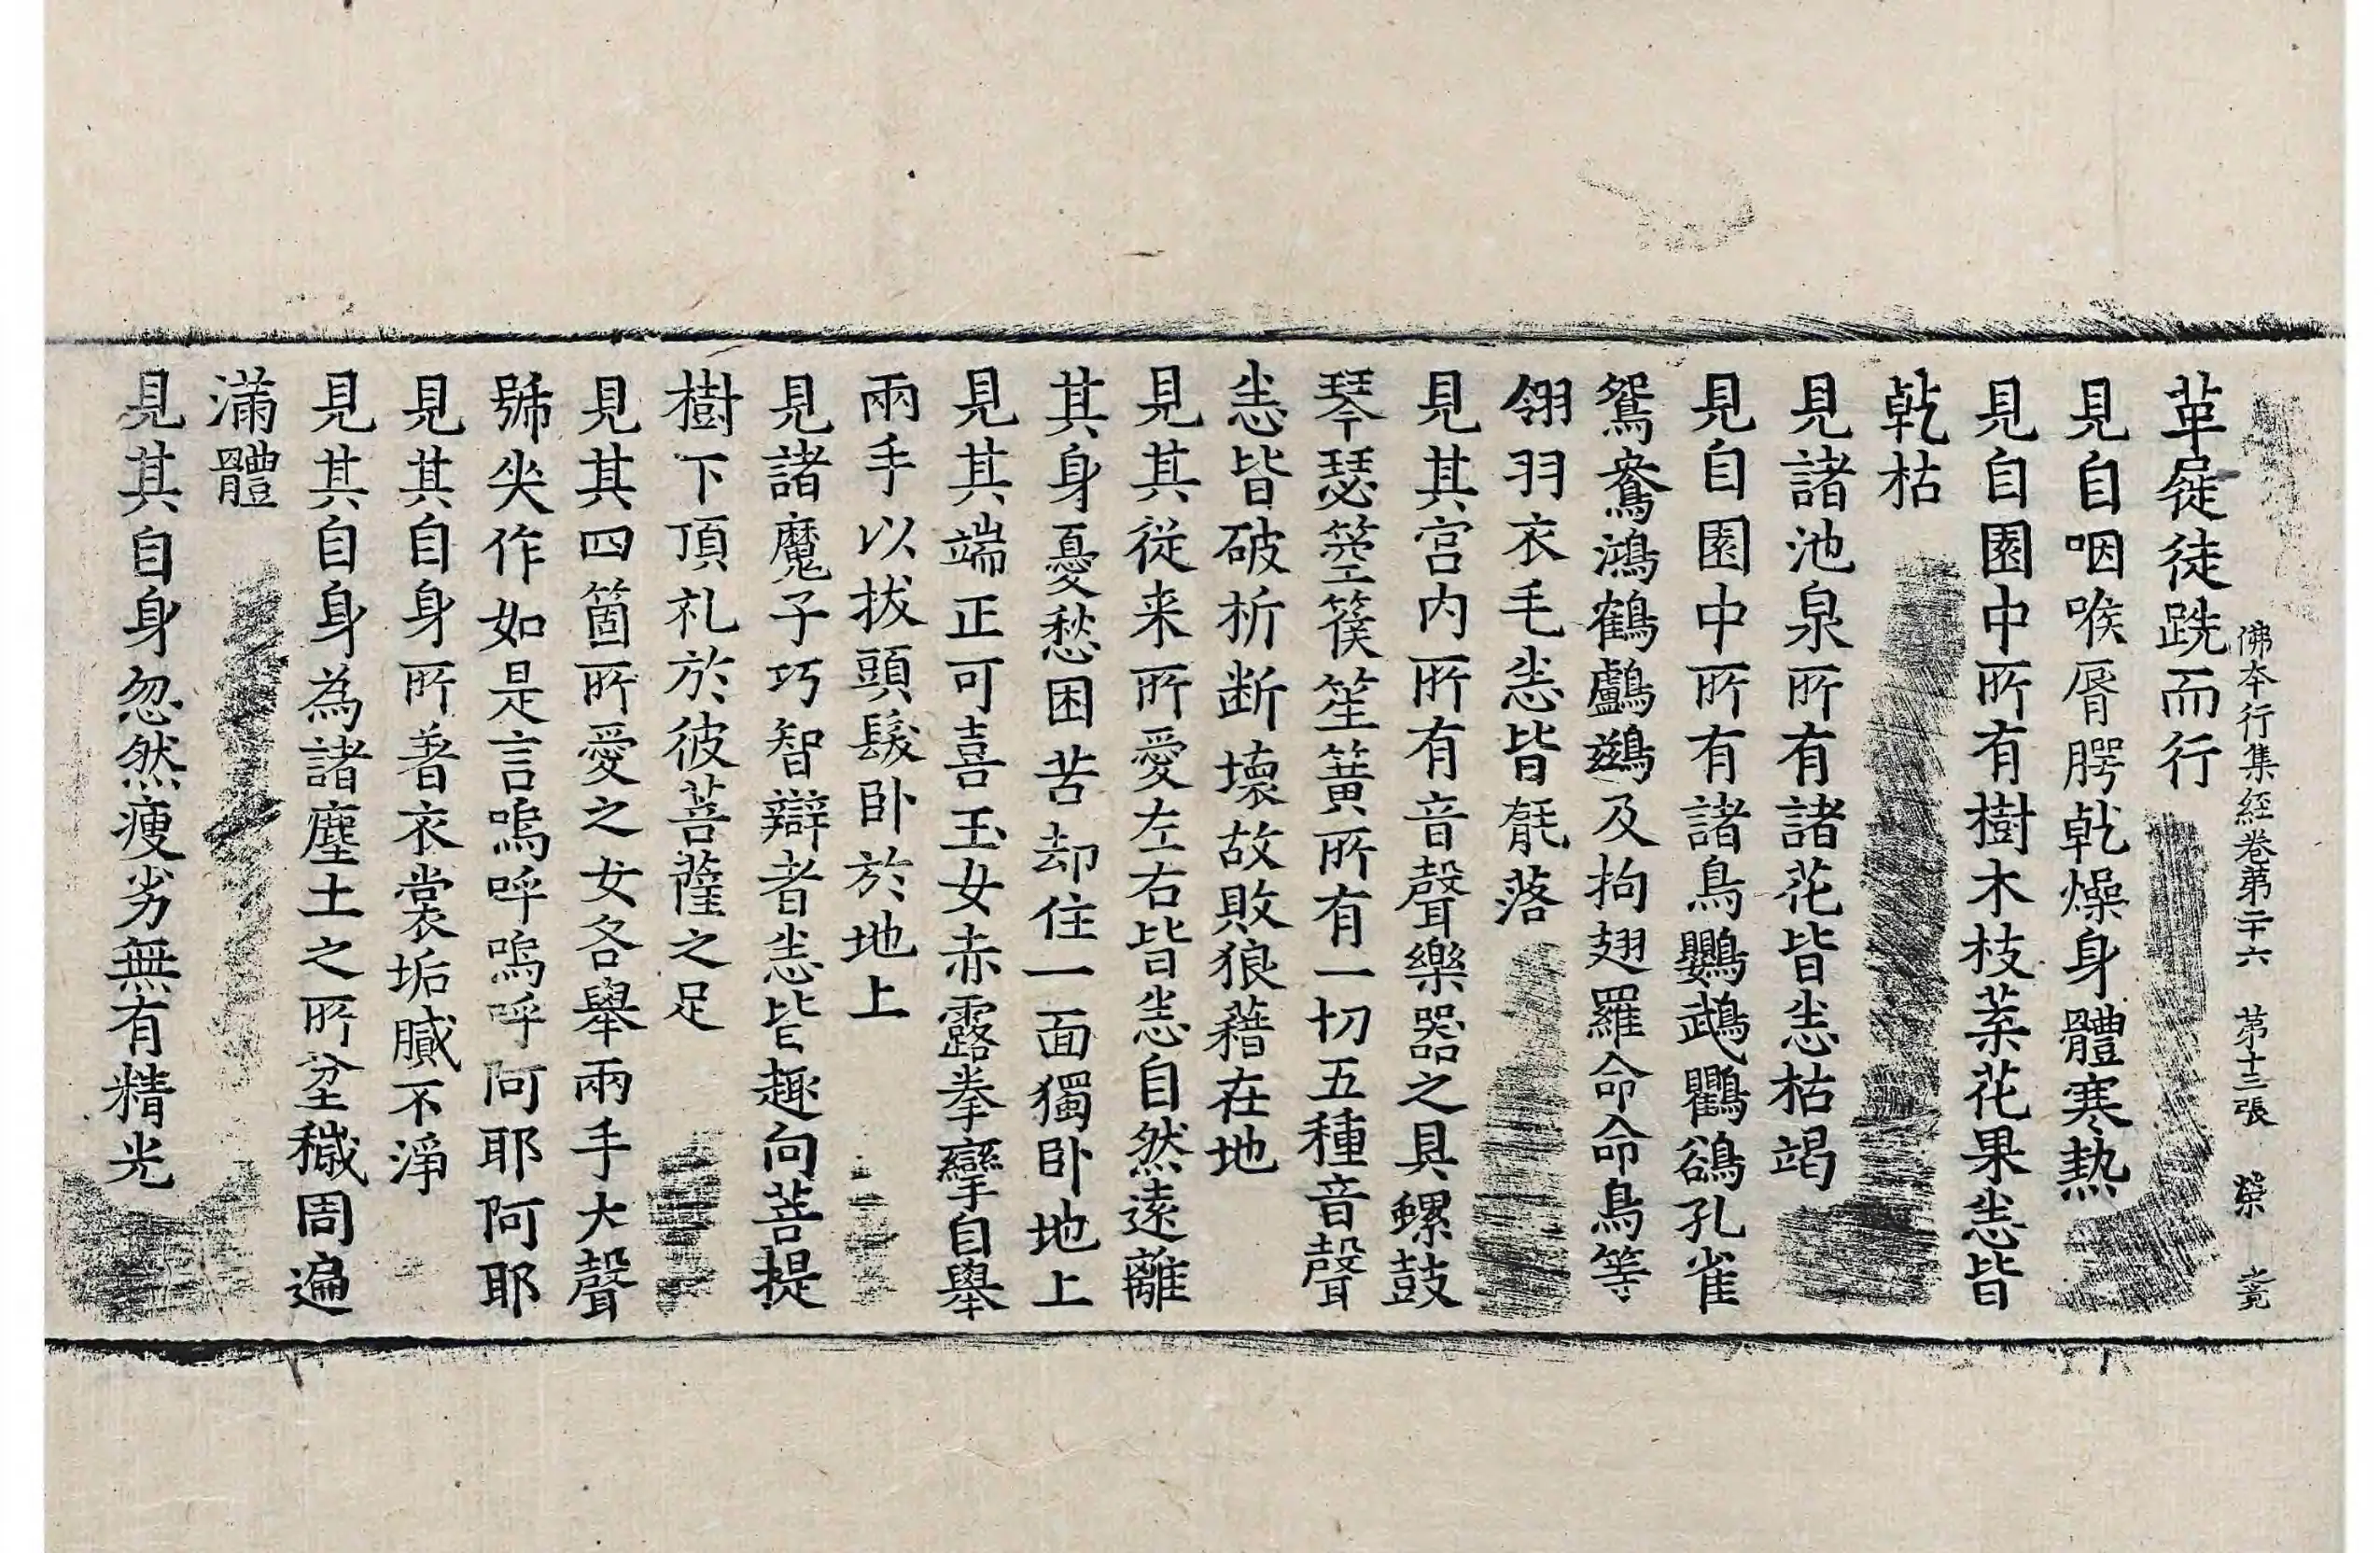 佛本行集經卷第二十六　第十三張　榮
革屣徒跣而行
見自咽喉脣腭乾燥身體寒熱
見自園中所有樹木枝葉花果悉皆
乾枯
見諸池泉所有諸花皆悉枯竭
見自園中所有諸鳥鸚鵡鸜鵒孔雀
鴛鴦鴻鶴鸕鷀及拘翅羅命命鳥等
翎羽衣毛悉皆毻落
見其宮内所有音聲樂器之具螺鼓
琴瑟箜篌笙簧所有一切五種音聲
悉皆破析断壞故敗狼藉在地
見其從来所愛左右皆悉自然遠離
其身憂愁困苦却住一面獨卧地上
見其端正可喜玉女赤露拳攣自舉
兩手以拔頭髮卧於地上
見諸魔子巧智辯者悉皆趣向菩提
樹下頂礼於彼菩薩之足
見其四箇所愛之女各舉兩手大聲
號哭作如是言嗚呼嗚呼阿耶阿耶
見其自身所著衣裳垢膩不淨
見其自身為諸塵土之所坌穢周遍
滿體
見其自身忽然瘦劣無有精光